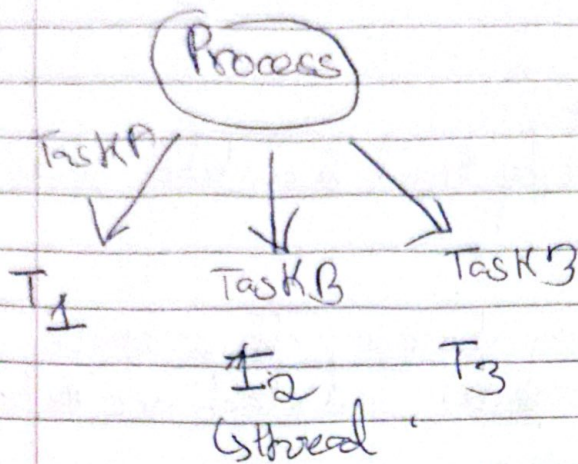 Process
Task A
T1
Task B
Task 3
T2
T3
↳ thread